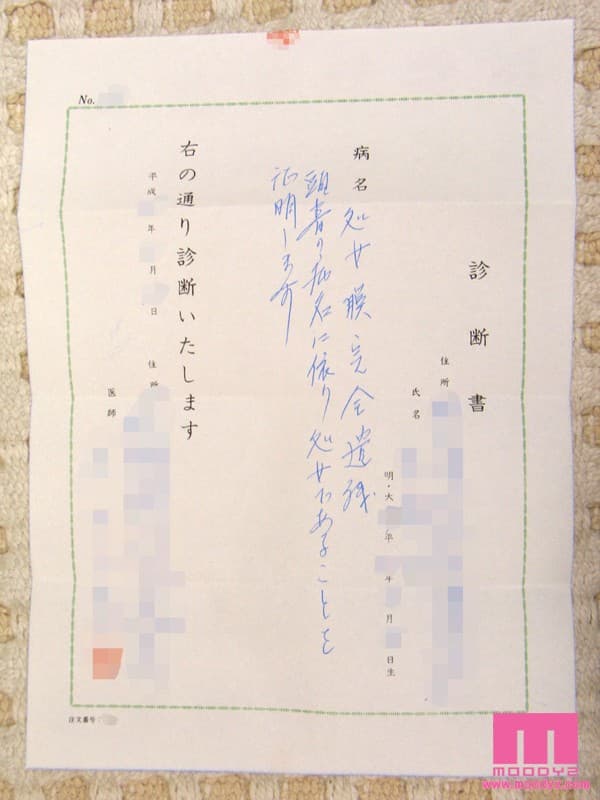 診断書
住所
氏名
明・大 年 年 月 日生
病名 処女膜完全遺残
頭書の病名に依り処女であることを
証明します
右の通り診断いたします
平成 年 月 日
住所
医師
No.
注文番号
MOODYZ
www.moodyz.com